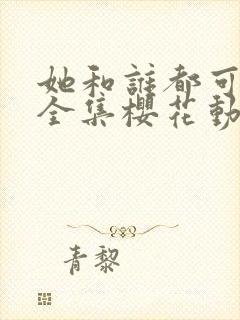 她和誰都可
全集櫻花動
青黎